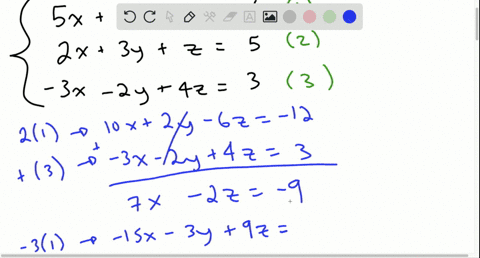 5x +
2x + 3y + z = 5 (2)
-3x - 2y + 4z = 3 (3)
2(1) → 10x + 2y - 6z = -12
+ (3) → + -3x - 2y + 4z = 3
7x - 2z = -9
-3(1) → -15x - 3y + 9z =